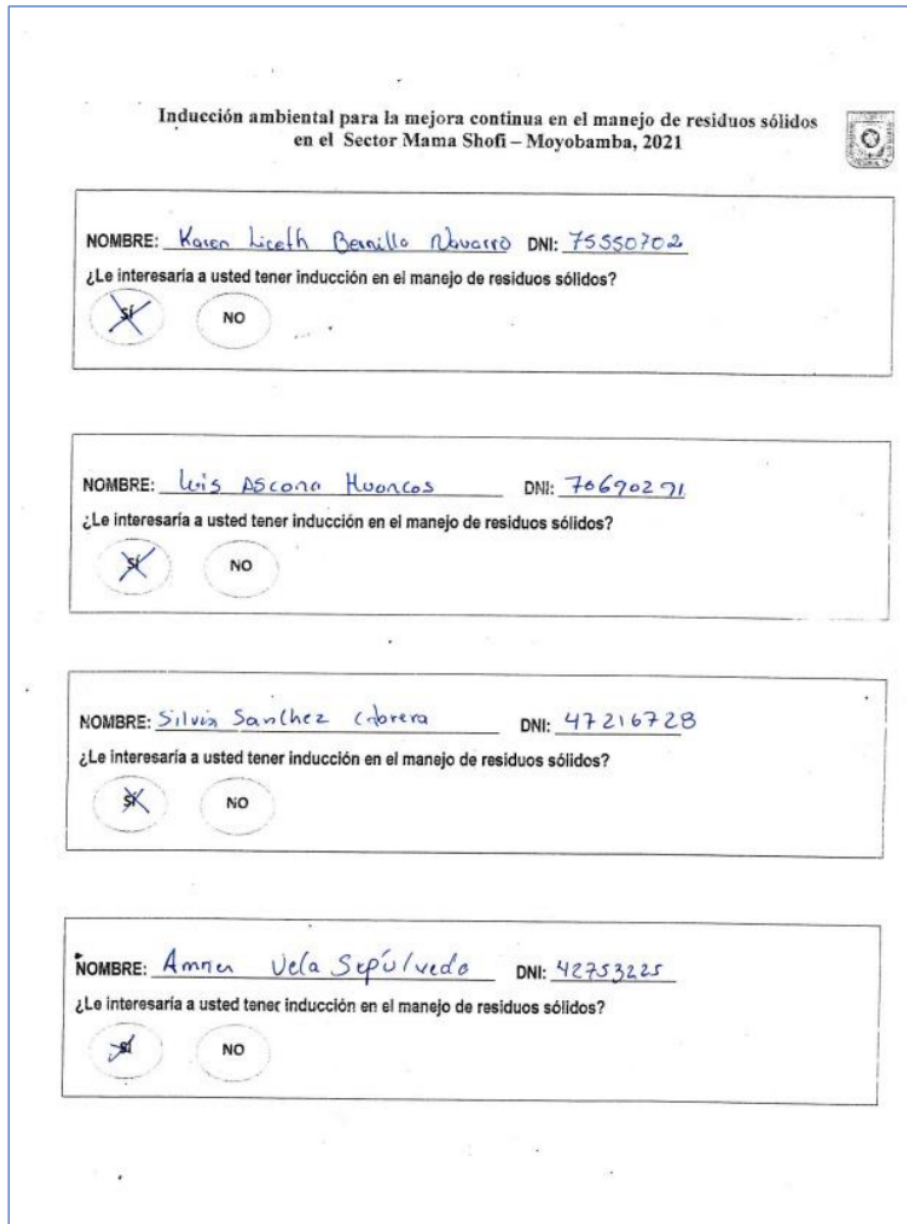 Inducción ambiental para la mejora continua en el manejo de residuos sólidos
en el Sector Mama Shofi – Moyobamba, 2021
NOMBRE: Karen Liceth Bernillo Navarro DNI: 75550702
¿Le interesaría a usted tener inducción en el manejo de residuos sólidos?
SÍ NO
NOMBRE: Luis Ascona Huancas DNI: 70690291
¿Le interesaría a usted tener inducción en el manejo de residuos sólidos?
SÍ NO
NOMBRE: Silvia Sanchez Cabrera DNI: 47216728
¿Le interesaría a usted tener inducción en el manejo de residuos sólidos?
SÍ NO
NOMBRE: Vela Sepúlveda DNI: 42753225
¿Le interesaría a usted tener inducción en el manejo de residuos sólidos?
SÍ NO